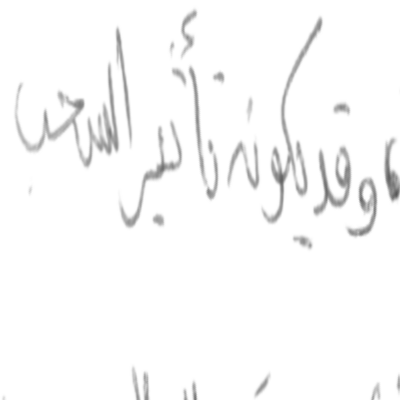 ، وقد يكون تأثير السحب